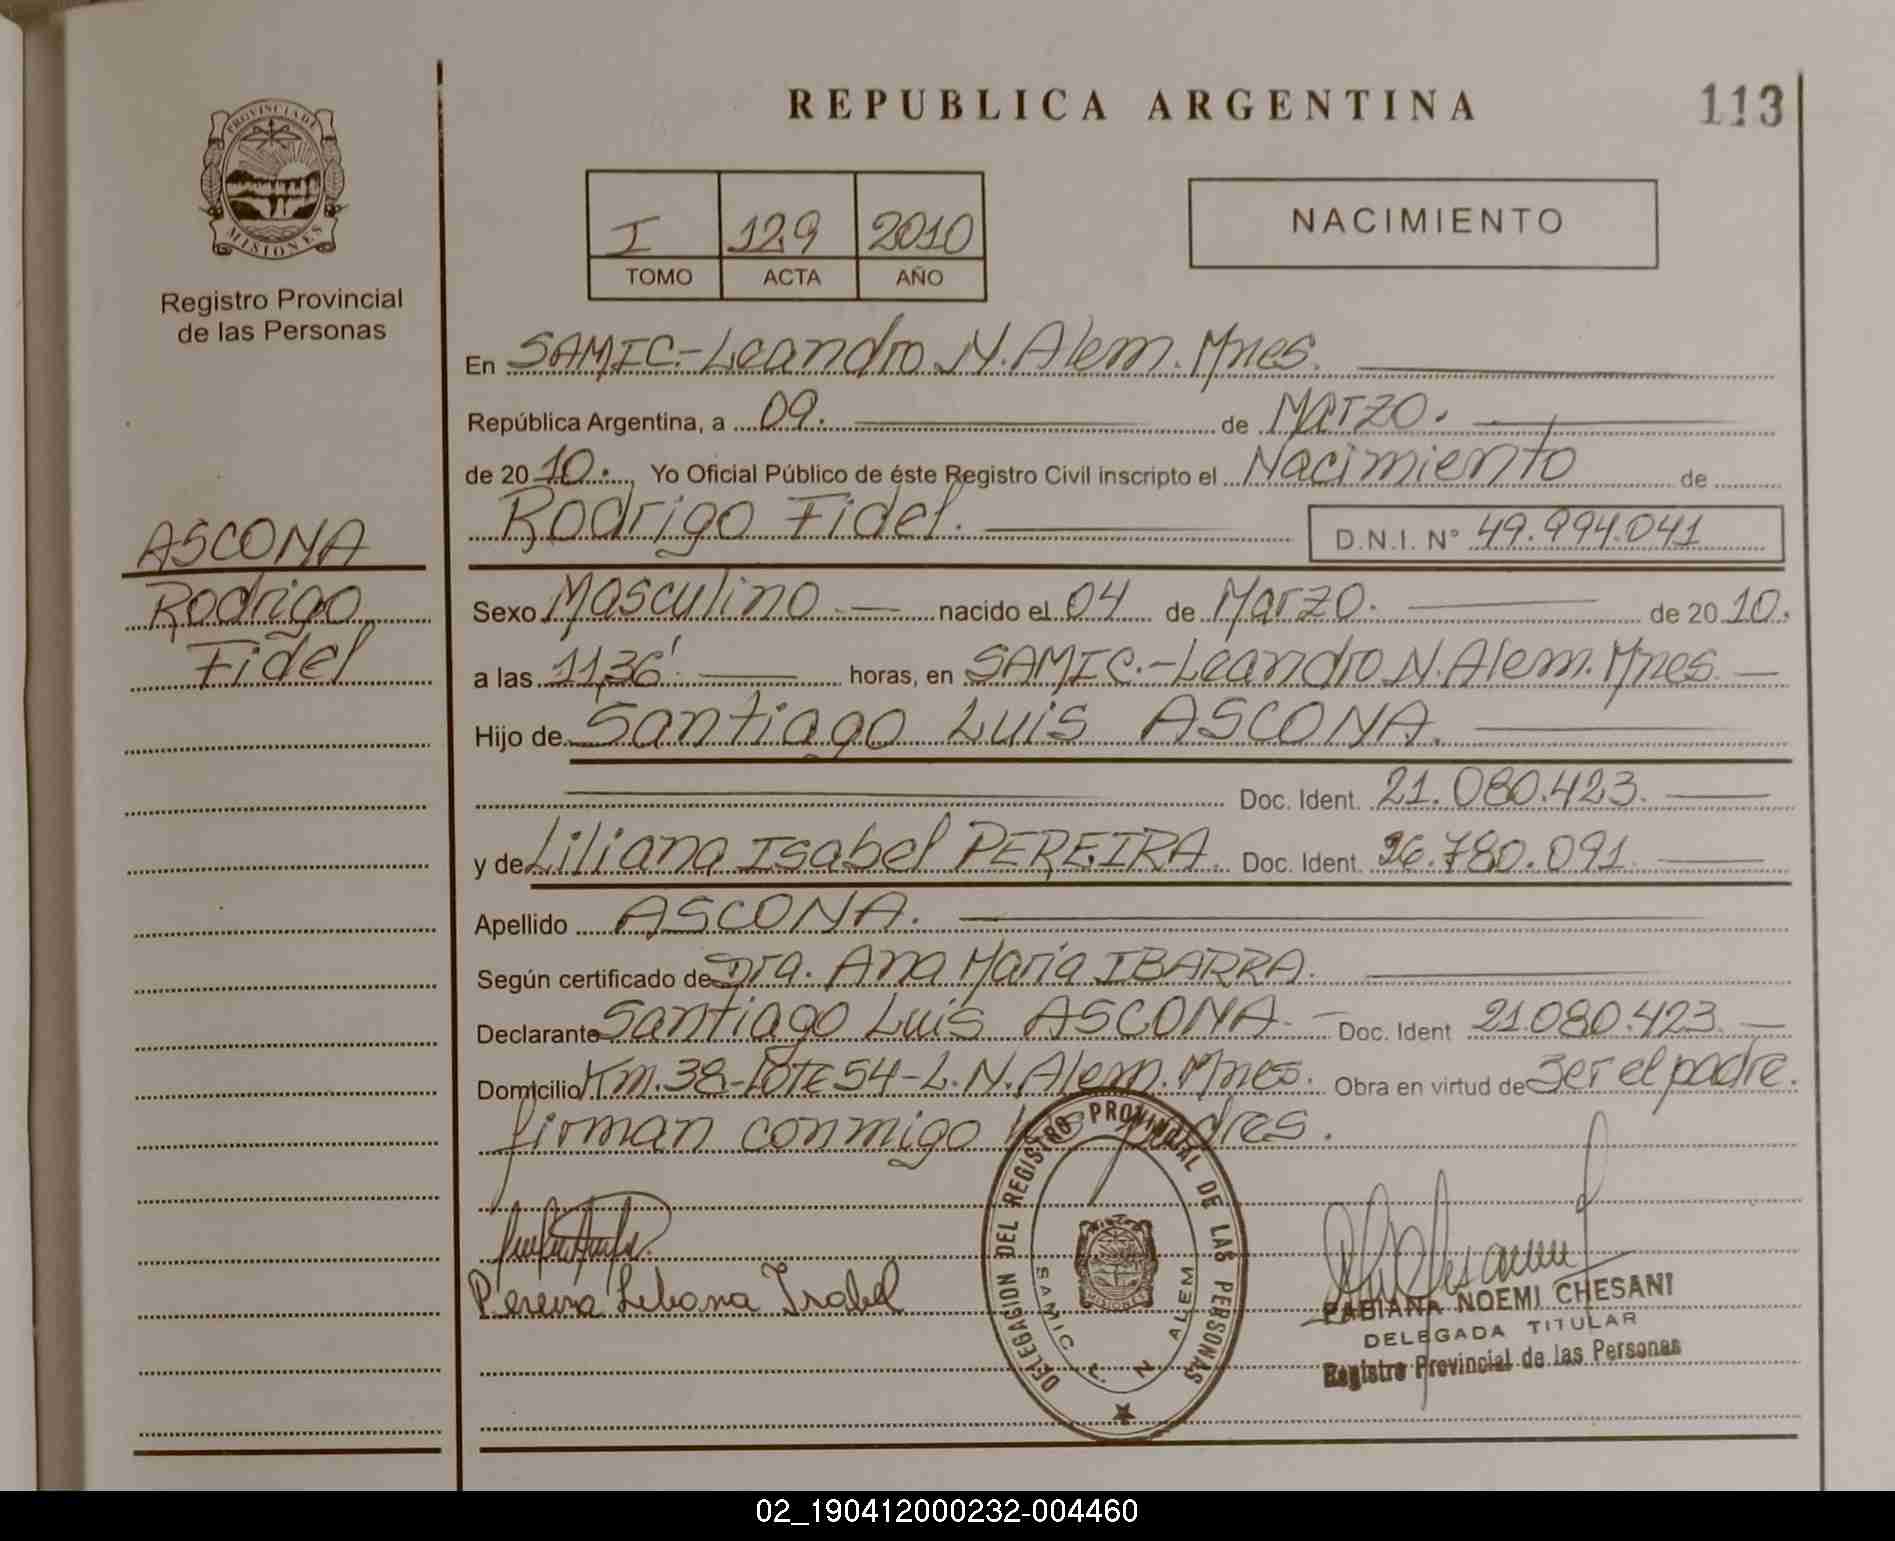 REPUBLICA ARGENTINA
113
PROVINCIA DE MISIONES
Registro Provincial
de las Personas
I 129 2010
TOMO ACTA AÑO
NACIMIENTO
En SAMIC-Leandro N. Alem. Mnes.
República Argentina, a 09. de Marzo.
de 2010. Yo Oficial Público de éste Registro Civil inscripto el Nacimiento de
Rodrigo Fidel. D.N.I. N° 49.994.041
ASCONA
Rodrigo
Fidel
Sexo Masculino. nacido el 04 de Marzo. de 2010.
a las 11,36'. horas, en SAMIC.-Leandro N. Alem. Mnes.
Hijo de Santiago Luis ASCONA.
Doc. Ident. 21.080.423.
y de Liliana Isabel PEREIRA. Doc. Ident. 26.780.091.
Apellido ASCONA.
Según certificado de Dra. Ana María IBARRA.
Declarante Santiago Luis ASCONA.- Doc. Ident 21.080.423.
Domicilio Km.38-Lote 54-L.N. Alem. Mnes. Obra en virtud de ser el padre.
firman conmigo los padres.
Pereira Liliana Isabel
DELEGACION DEL REGISTRO PROVINCIAL DE LAS PERSONAS
SAMIC L. N ALEM
MISIONES
FABIANA NOEMI CHESANI
DELEGADA TITULAR
Registro Provincial de las Personas
02_190412000232-004460